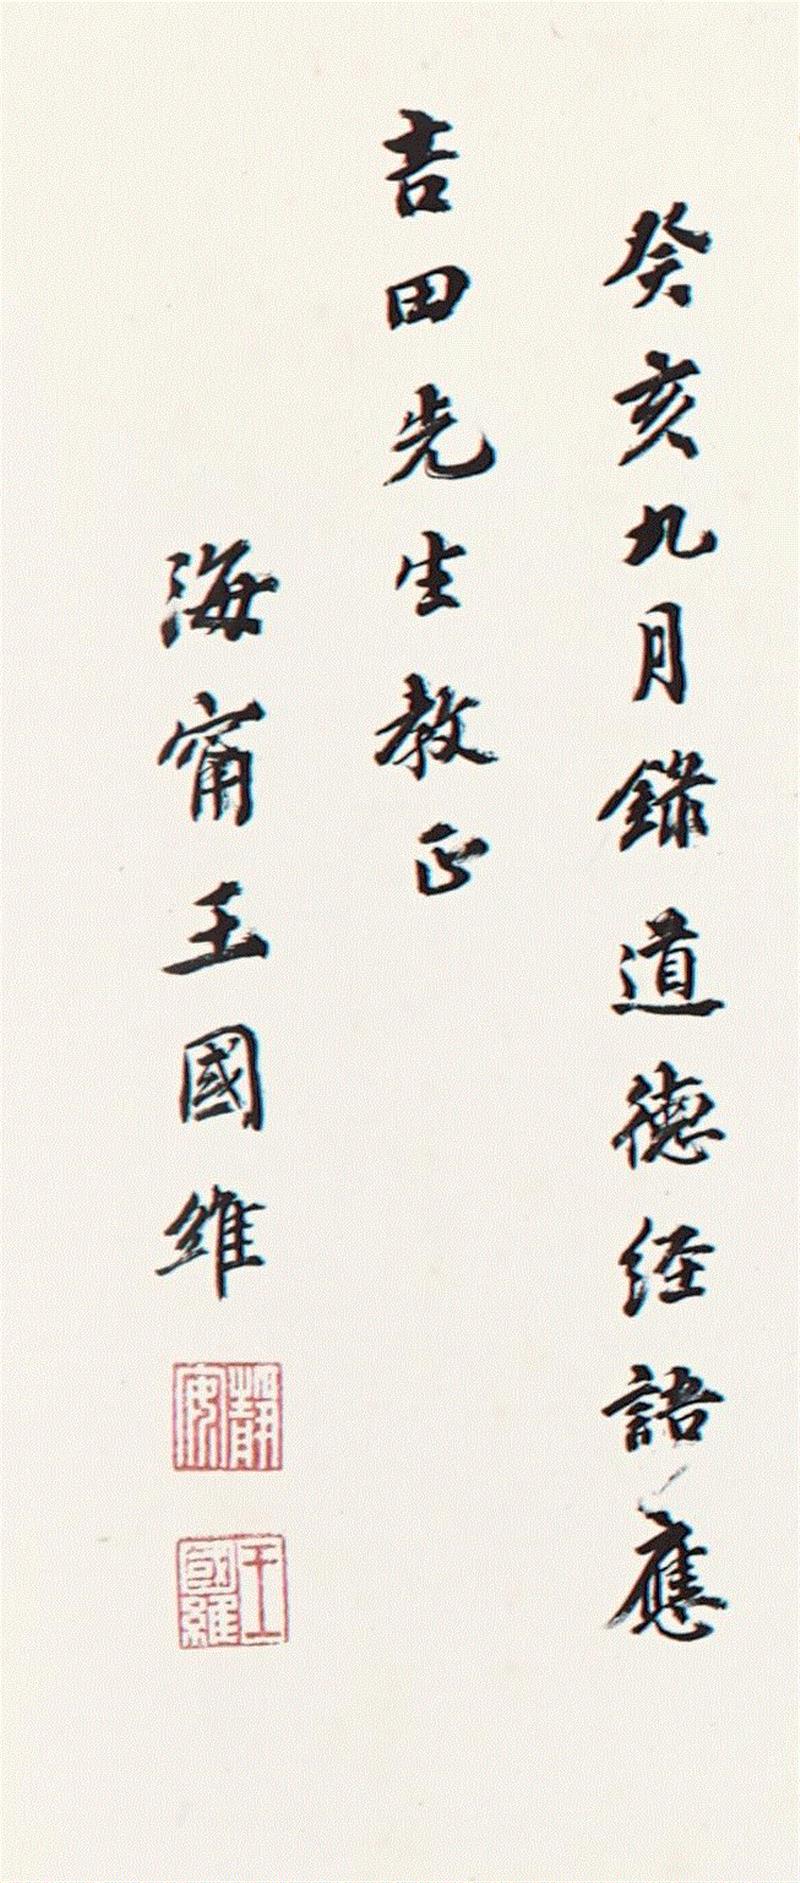 癸亥九月錄道德经語應
吉田先生教正
海甯王國維
靜安
王國維